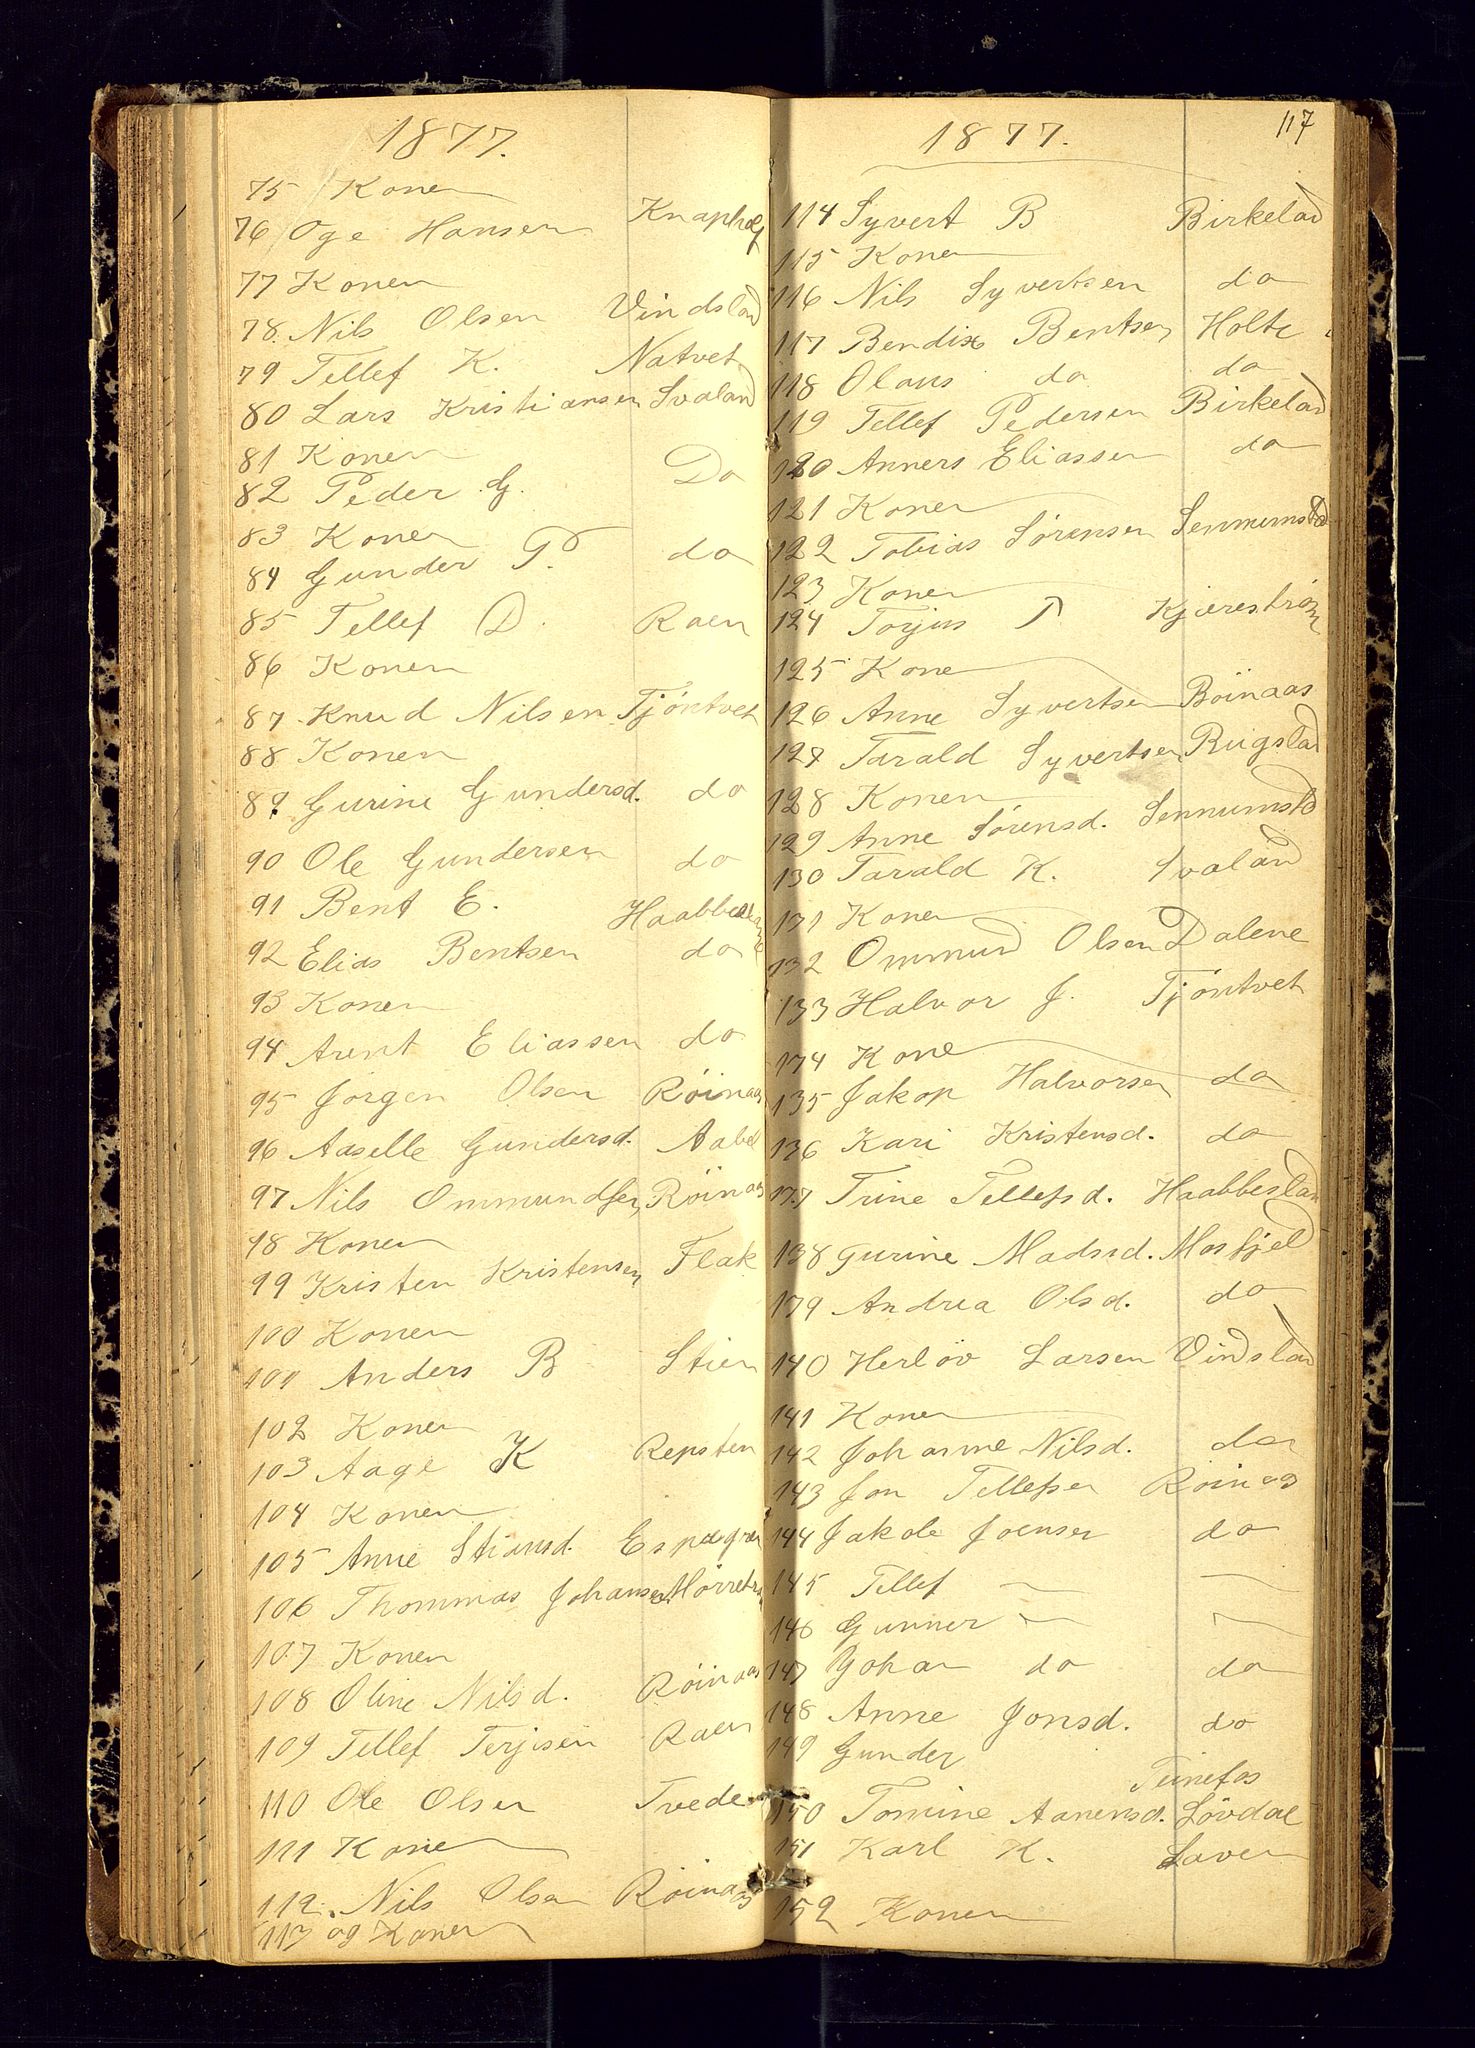 1877.
75 Konen
76 Oge Hansen
77 Konen
78. Nils Olsen Vindsland
79 Tellef K. Natvet
80 Lars Kristiansen Svaland
81 Konen
82 Peder G. Do
83 Konen
84 Gunder P. do
85 Tellef D. Raen
86 Konen
87 Knud Nilsen Tjöntvet
88 Konen
89. Gurine Gundersd. do
90 Ole Gundersen do
91 Bent E.
92 Elias Bentsen do
93 Konen
94 Arent Eliassen do
95 Jörgen Olsen Röinaas
96 Aaselle Gundersd. Aabel
97 Nils Ommundsen Röinaas
98 Konen
99 Kristen Kristensen Flak
100 Konen
101 Anders B Stien
102 Konen
103 Aage K Repsten
104 Konen
105 Anne Stiansd.
106 Thommas Johansen
107 Konen
108 Oline Nilsd. Röinaas
109 Tellef Terjisen Raen
110 Ole Olsen Tvede
111 Kone
112. Nils Olsen Röinaas
113 og Konen
117
1877.
114 Syvert B Birkelad
115 Konen
116 Nils Syvertsen do
117 Bendix Bentsen Holte
118 Olaus do do
119 Tellef Pedersen Birkelad
120 Anners Eliassen do
121 Konen
122 Tobias Sörensen Sennumstad
123 Konen
124 Torjus T Kjereström
125 Kone
126 Anne Syvertsen Böinaas
127 Tarald Syvertsen Rugslad
128 Konen
129 Anne Sörensd. Sennumstad
130 Tarald K. Svaland
131 Konen
132 Ommund Olsen Dalene
133 Halvor J. Tjöntvet
134 Kone
135 Jakop Halvorsen do
136 Kari Kristensd. do
137 Trine Tellefsd. Haabbeslan
138 Gurine Madssd. Mosfjeld
139 Andrea Olsd. do
140 Herlöv Larsen Vindslad
141 Konen
142 Johanne Nilsd. do
143 Jon Tellefsen Röinas
144 Jakole Joensen do
145 Tellef — —
146 Gunner — —
147 Johan do do
148 Anne Jonsd. do
149 Gunder
Teinefos
150 Tomine Aanensd. Lövdal
151 Karl K. Laven
152 Konen